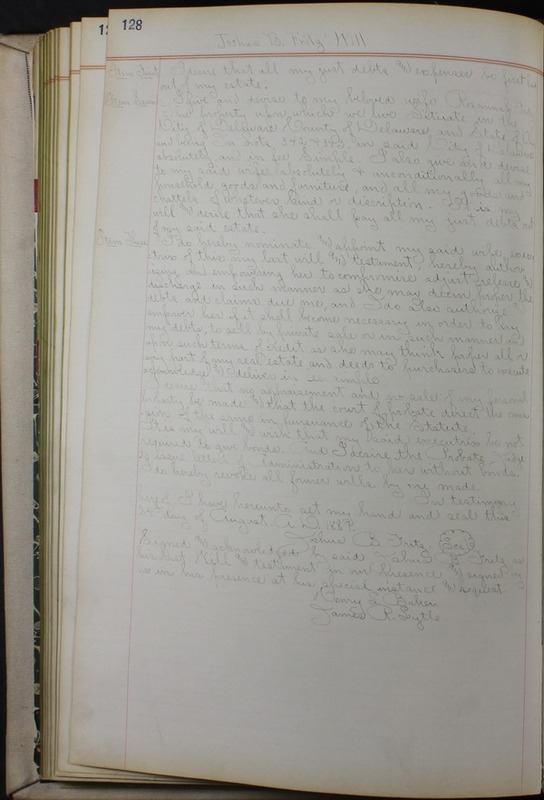 128
Joshua B. Fritz' Will
Item First I desire that all my just debts & expenses be first
out of my estate.
Item Second I give and devise to my beloved wife
the property upon which we live situate in the
City of Delaware County of Delaware and State of
and being In Lots 342 & 343 in said City of Delaware
absolutely and in fee simple. I also give and devise
to my said wife absolutely & unconditionally all my
household goods and furniture, and all my goods and
chattels of whatever kind or discription. It is my
will & desire that she shall pay all my just debts out
of my said estate.
Item Three I do hereby nominate & appoint my said wife execu
trix of this my last will & testament, hereby author
izing and empowering her to compromise adjust release &
discharge in such manner as she may deem proper the
debts and claims due me, and I do also authorize &
empower her if it shall become necessary in order to pay
my debts, to sell by private sale or in such manner and
upon such terms of credit as she may think proper all or
any part of my real estate and deeds to purchasers to execute
acknowledge & deliver in fee simple
I desire that no appraisement and no sale of my personal
property be made & that the court of probate direct the omis
sion of the same in pursuance of the Statute.
It is my will & wish that my said executrix be not
required to give bonds. And I desire the Probate Judge
to issue letters of administration to her without bonds.
I do hereby revoke all former wills by me made
In testimony
whereof I have hereunto set my hand and seal this
day of August, A.D. 1889.
Joshua B. Fritz Seal
Signed & acknowledged by said Joshua B. Fritz as
his last Will & testament in our presence & signed by
us in his presence at his special instance & request
Henry
James R. Lytle